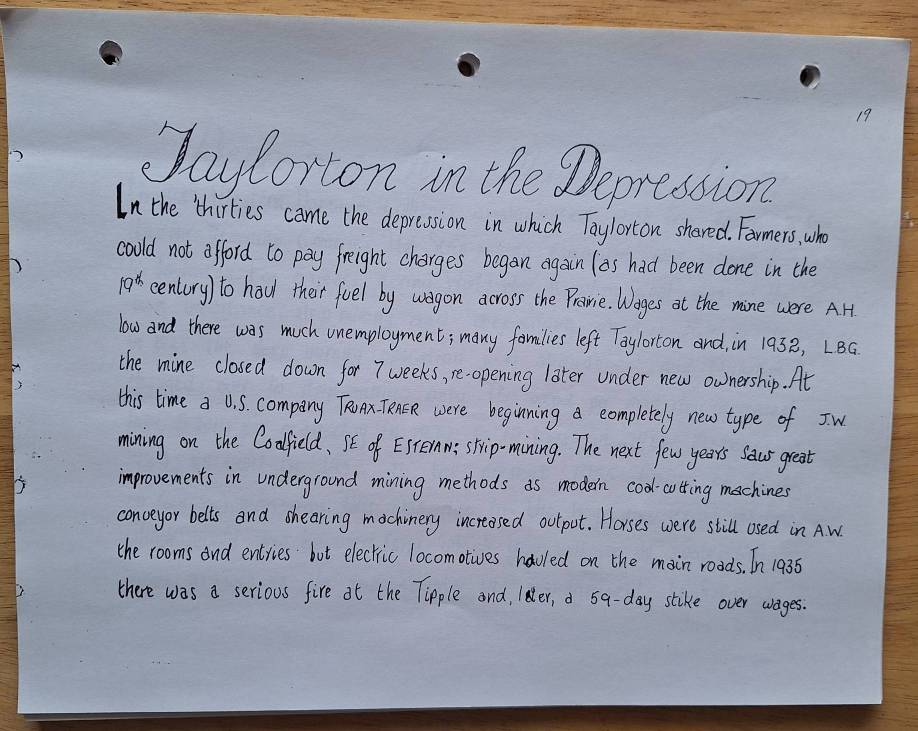 19
Taylorton in the Depression.
In the 'thirties came the depression in which Taylorton shared. Farmers, who
could not afford to pay freight charges began again (as had been done in the
19th century) to haul their fuel by wagon across the Prairie. Wages at the mine were A.H.
low and there was much unemployment; many families left Taylorton and, in 1932, L.B.G.
the mine closed down for 7 weeks, re-opening later under new ownership. At
this time a U.S. company TRUAX-TRAER were beginning a completely new type of J.W.
mining on the Coalfield, SE of ESTEVAN; strip-mining. The next few years saw great
improvements in underground mining methods as modern coal-cutting machines
conveyor belts and shearing machinery increased output. Horses were still used in A.W.
the rooms and entries but electric locomotives hauled on the main roads. In 1935
there was a serious fire at the Tipple and, later, a 59-day stike over wages.